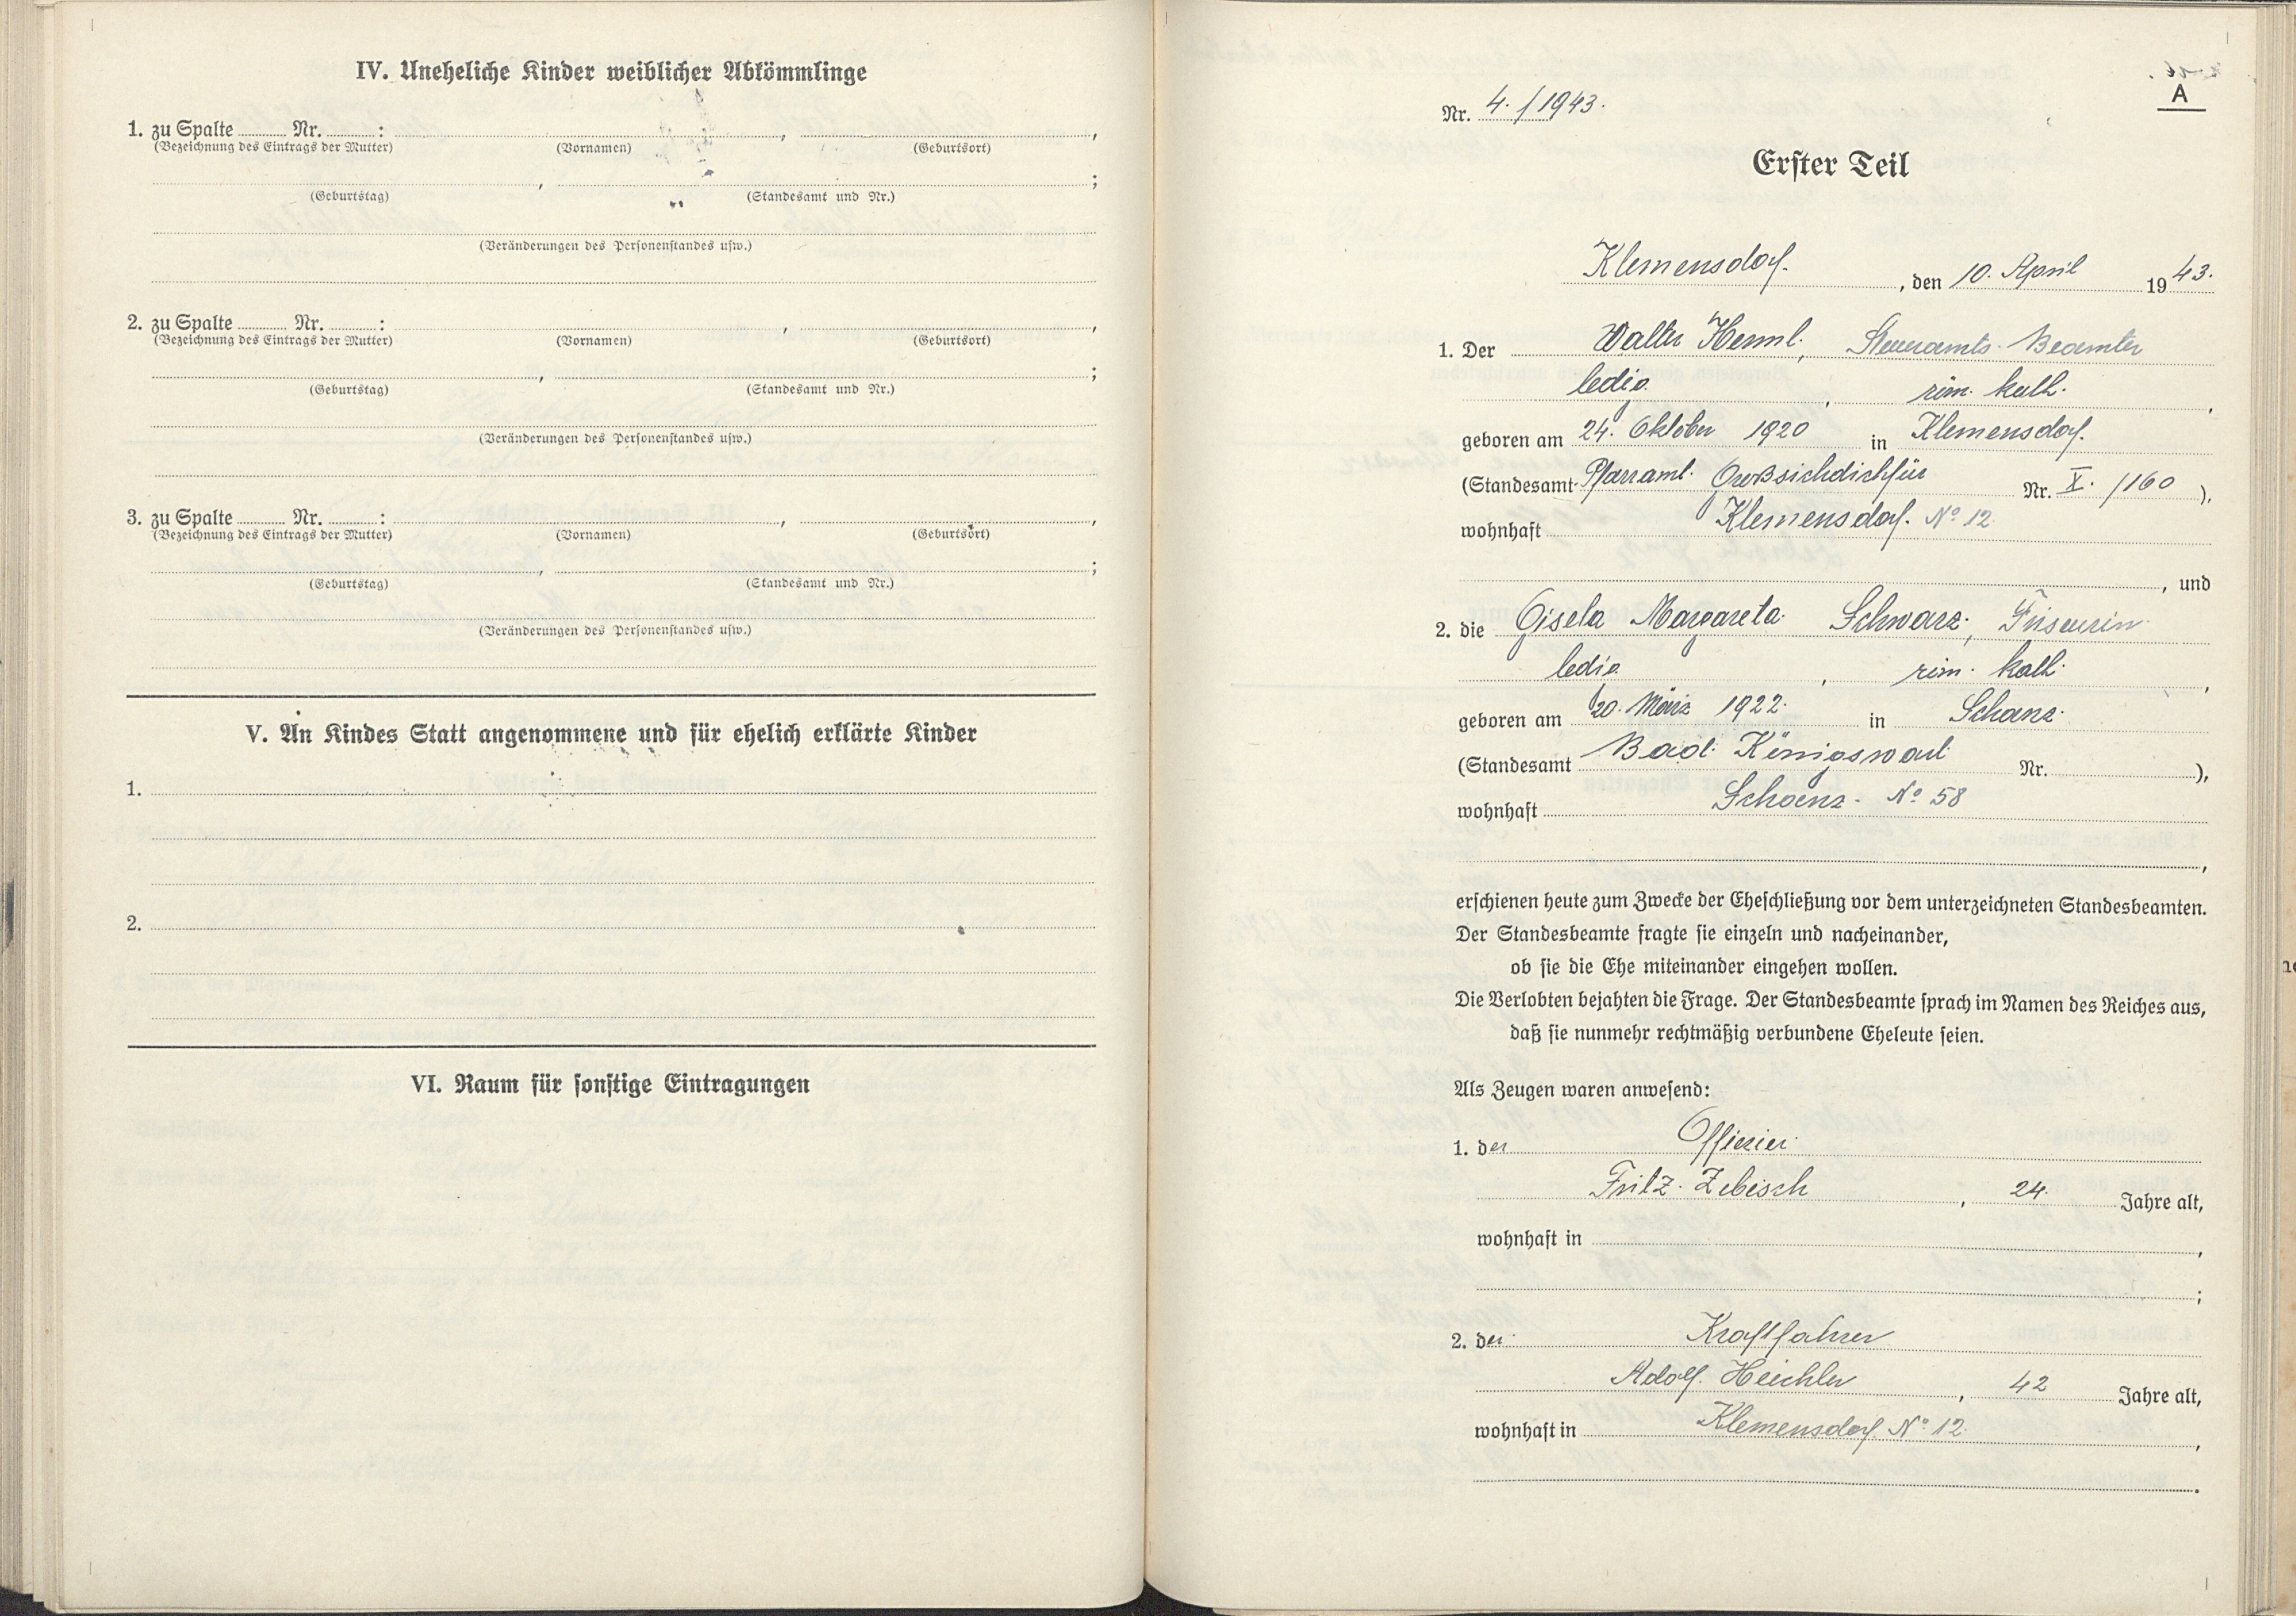 IV. Uneheliche Kinder weiblicher Abkömmlinge
1. zu Spalte ........ Nr. ........ : ........ , ........ ,
(Bezeichnung des Eintrags der Mutter) (Vornamen) (Geburtsort)
........ , ........ ;
(Geburtstag) (Standesamt und Nr.)
(Veränderungen des Personenstandes usw.)
2. zu Spalte ........ Nr. ........ : ........ , ........ ,
(Bezeichnung des Eintrags der Mutter) (Vornamen) (Geburtsort)
........ , ........ ;
(Geburtstag) (Standesamt und Nr.)
(Veränderungen des Personenstandes usw.)
3. zu Spalte ........ Nr. ........ : ........ , ........ ,
(Bezeichnung des Eintrags der Mutter) (Vornamen) (Geburtsort)
........ , ........ ;
(Geburtstag) (Standesamt und Nr.)
(Veränderungen des Personenstandes usw.)
V. An Kindes Statt angenommene und für ehelich erklärte Kinder
1.
2.
VI. Raum für sonstige Eintragungen
A
Nr. 4./1943.
Erster Teil
Klemensdorf. , den 10. April 1943.
1. Der Walter Heml., Steueramts-Beamter
ledig , röm. kath. ,
geboren am 24. Oktober 1920 in Klemensdorf.
(Standesamt Pfarramt. Großsichdichfür Nr. X. /160 ),
wohnhaft Klemensdorf. No 12.
, und
2. die Gisela Margareta Schwarz, Friseurin
ledig , röm. kath. ,
geboren am 20. März 1922. in Schanz.
(Standesamt Bad. Königswart Nr. ),
wohnhaft Schanz. No 58
,
erschienen heute zum Zwecke der Eheschließung vor dem unterzeichneten Standesbeamten.
Der Standesbeamte fragte sie einzeln und nacheinander,
ob sie die Ehe miteinander eingehen wollen.
Die Verlobten bejahten die Frage. Der Standesbeamte sprach im Namen des Reiches aus,
daß sie nunmehr rechtmäßig verbundene Eheleute seien.
Als Zeugen waren anwesend:
1. der Offizier
Fritz. Zebisch , 24. Jahre alt,
wohnhaft in ,
;
2. der Kraftfahrer
Adolf. Heichler , 42 Jahre alt,
wohnhaft in Klemensdorf No 12. ,
.